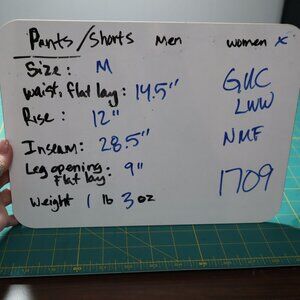 Pants/Shorts Men women x
Size: M
waist, flat lay: 14.5"
Rise: 12"
Inseam: 28.5"
Leg opening flat lay: 9"
Weight 1 lb 3 oz
GUC
LWW
NMF
1709